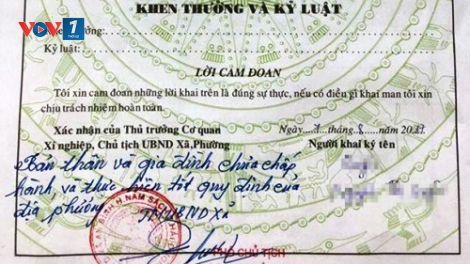 VOV1
KHEN THƯỞNG VÀ KỶ LUẬT
thưởng:
Kỷ luật:
LỜI CAM ĐOAN
Tôi xin cam đoan những lời khai trên là đúng sự thực, nếu có điều gì khai man tôi xin
chịu trách nhiệm hoàn toàn.
Xác nhận của Thủ trưởng Cơ quan
Xí nghiệp, Chủ tịch UBND Xã,Phường
Ngày tháng năm 20
Người khai ký tên
Bản thân và gia đình chưa chấp
hành và thực hiện tốt quy định của
địa phương
TM UBND Xã
H.NAM SÁCH
PHÓ CHỦ TỊCH